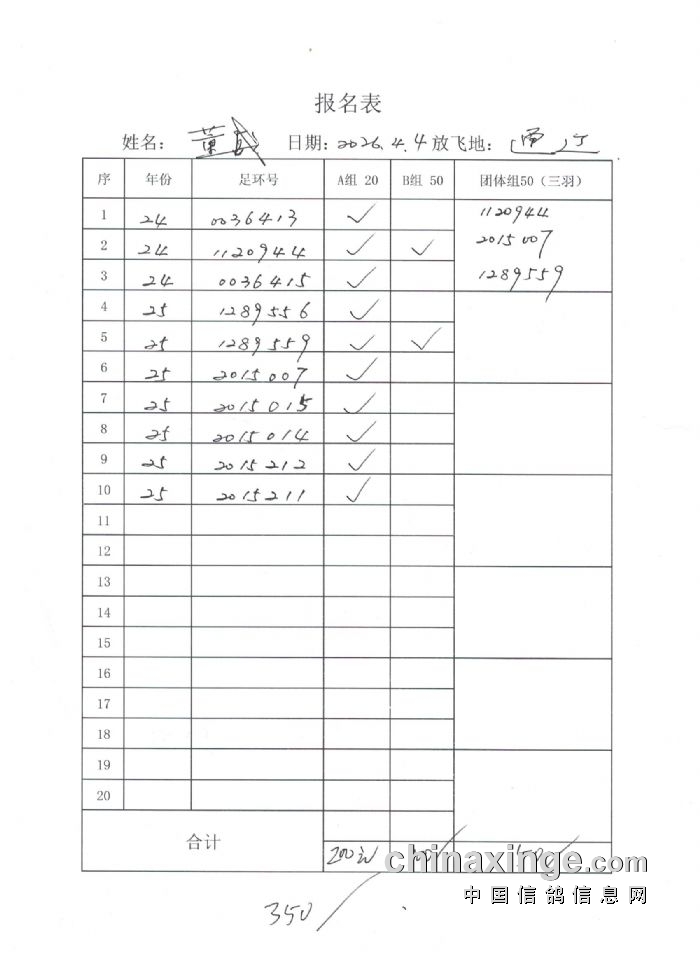 报名表
姓名: 董 日期: 2026.4.4 放飞地:
序 年份 足环号 A组 20 B组 50 团体组50（三羽）
1 24 0036413 ✓ 1120944
2 24 1120944 ✓ ✓ 2015007
3 24 0036415 ✓ 1289559
4 25 1289556 ✓
5 25 1289559 ✓ ✓
6 25 2015007 ✓
7 25 2015015 ✓
8 25 2015014 ✓
9 25 2015212 ✓
10 25 2015211 ✓
11
12
13
14
15
16
17
18
19
20
合计 200元
chinaxinge.com
中国信鸽信息网
350/